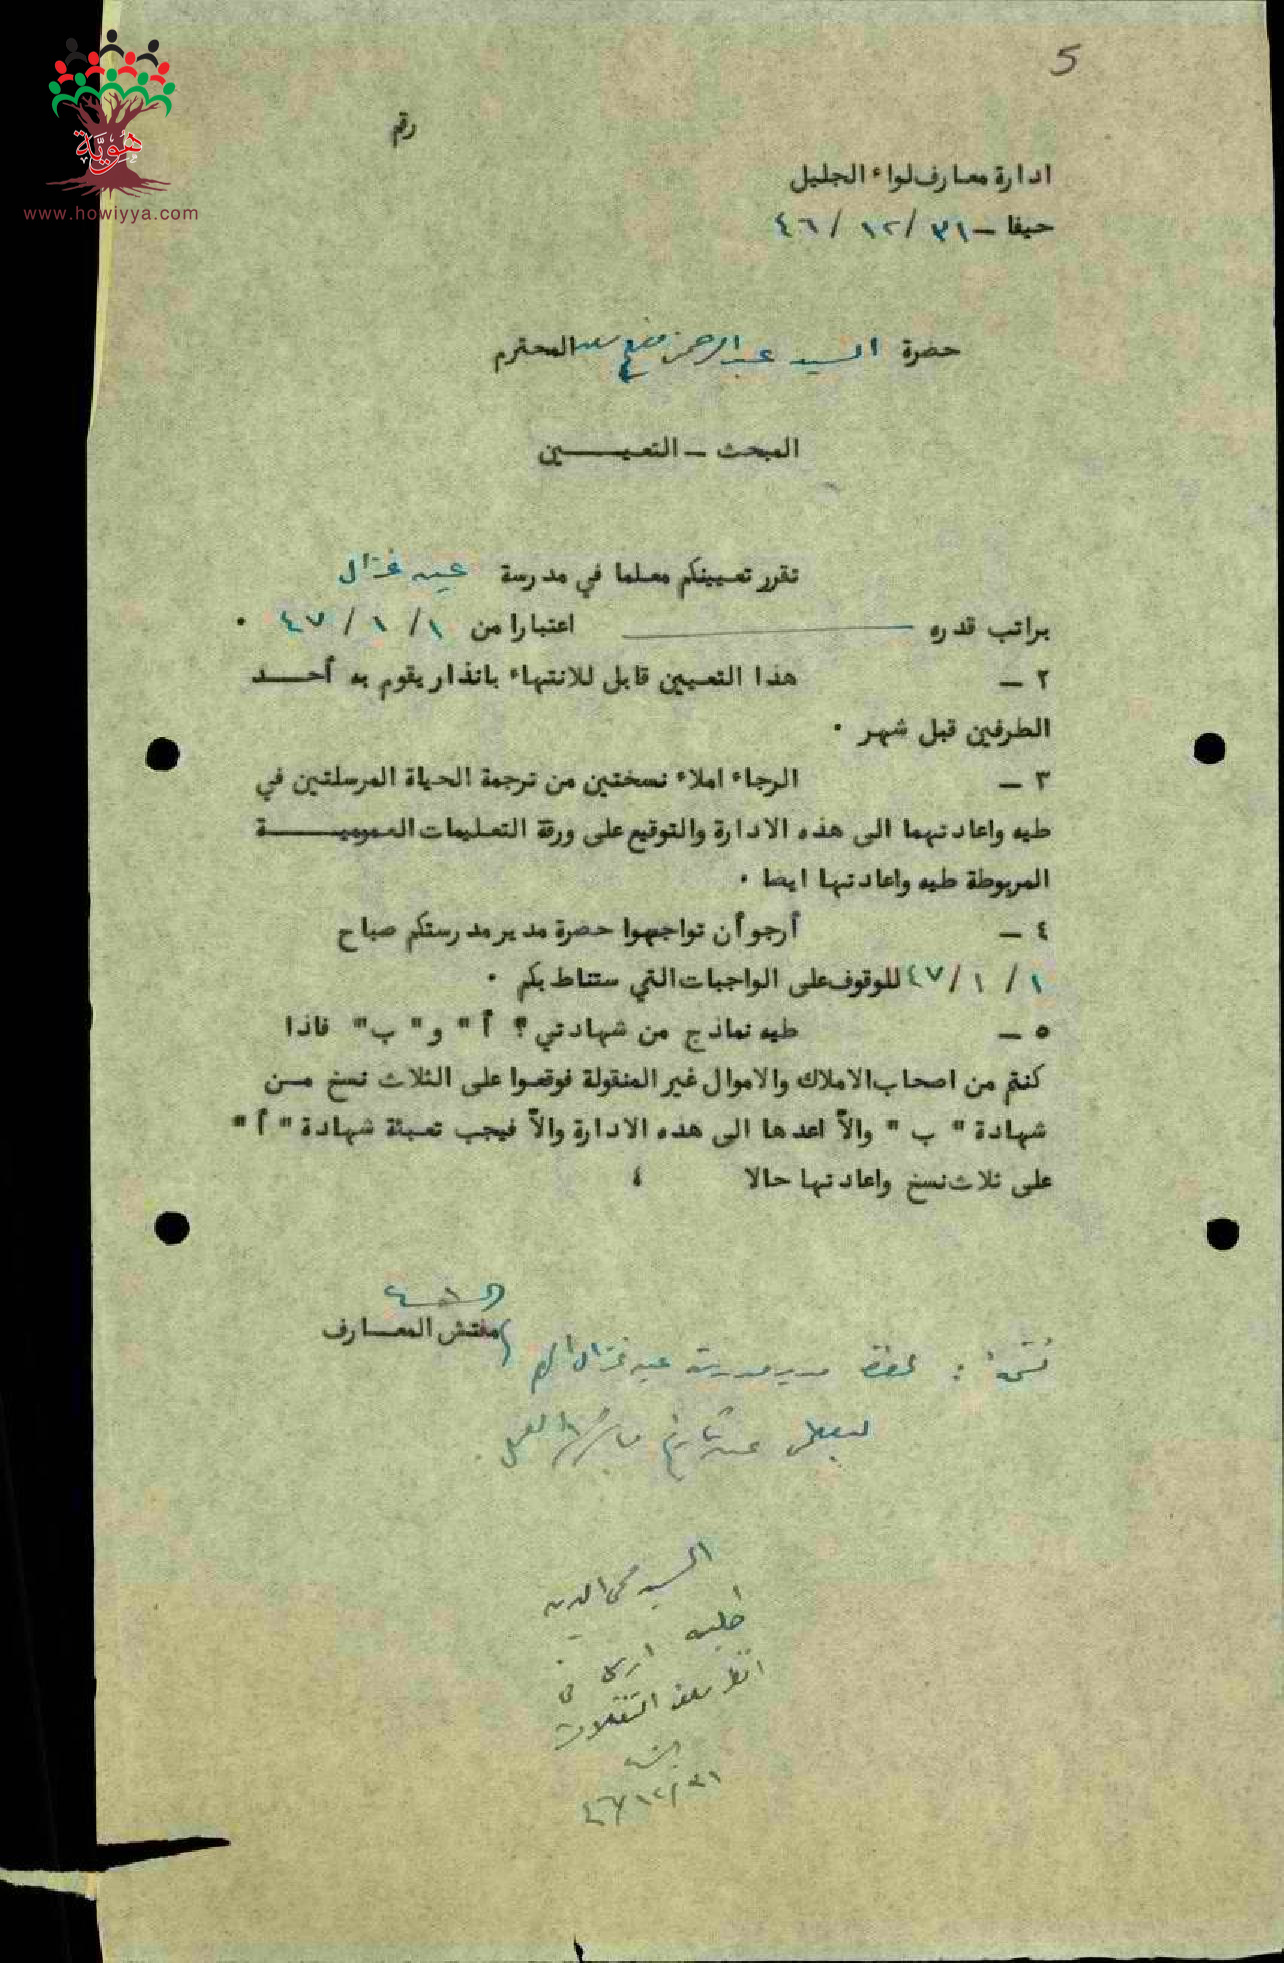 5
هُوِيَّة
www.howiyya.com
رقم
ادارة معارف لواء الجليل
حيفا - ٣١/ ١٢/ ٤٦
حضرة السيد عبد الرحمن سعد المحترم
المبحث - التعيـــــين
تقرر تعيينكم معلما في مدرسة عين غزال
براتب قدره ــــــــــ اعتبارا من ١/ ١/ ٤٧ ٠
٢ - هذا التعيين قابل للانتهاء بانذار يقوم به أحـــد
الطرفين قبل شهر ٠
٣ - الرجاء املاء نسختين من ترجمة الحياة المرسلتين في
طيه واعادتهما الى هذه الادارة والتوقيع على ورقة التعليمات العموميـــــة
المربوطة طيه واعادتها ايضا ٠
٤ - أرجو أن تواجهوا حضرة مدير مدرستكم صباح
١/ ١/ ٤٧ للوقوف على الواجبات التي ستناط بكم ٠
٥ - طيه نماذج من شهادتي " أ " و " ب " فاذا
كنتم من اصحاب الاملاك والاموال غير المنقولة فوقعوا على الثلاث نسخ مـن
شهادة " ب " والاّ اعدها الى هذه الادارة والاّ فيجب تعبئة شهادة " أ "
على ثلاث نسخ واعادتها حالا ٤
مفتش المعـارف
نسخة : لحضرة مدير مدرسة عين غزال
تاريخ العمل
السيد محي الدين
في
التنقلات
٣١/١٢/٤٦